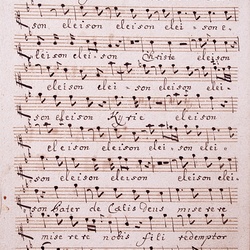 son eleison eleison elei = son e
leison eleison Christe eleison
eleison eleison elei
son eleison Kyrie eleison
eleison eleison eleison elei
son Pater de Cælis Deus miserere
miserere nobis fili redemptor